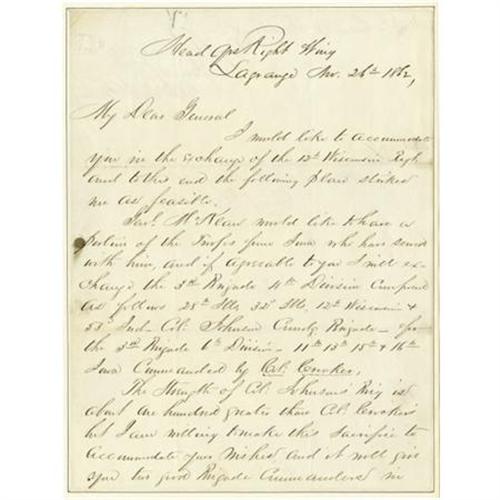 Head Qrs Right Wing
Lagrange Nov. 26th 1862,
My Dear General
I would like to accommodate
you in the exchange of the 12th Wisconsin Regt
and to this end the following plan strikes
me as feasible.
Genl. McKean would like to have a
portion of the Troops from Iowa who have served
with him, and if agreeable to you I will ex-
change the 3rd Brigade 4th Division Composed
as follows 28th Ills, 32d Ills, 12th Wisconsin &
53d Ind. Col. Johnson Comdg Brigade - for
the 3rd Brigade 6th Division - 11th 13th 15th & 16th
Iowa Commanded by Col. Crocker,
The Strength of Col. Johnson's Brig is
about one hundred greater than Col. Crockers
but I am willing to make this sacrifice to
accommodate your wishes and it will give
you two good Brigade Commanders in